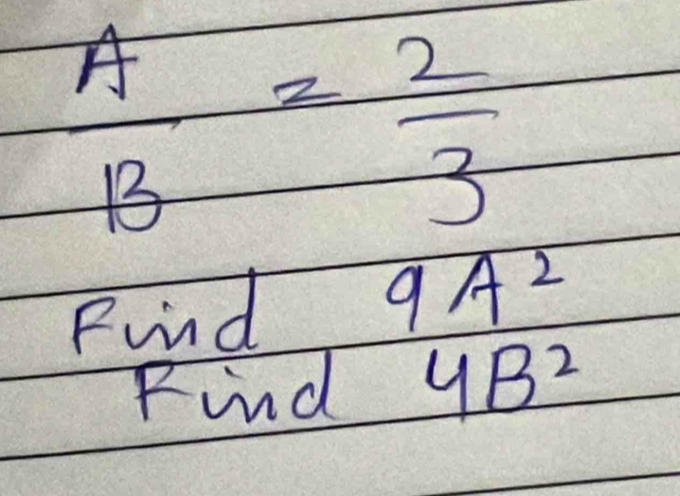 A/B = 2/3
Find 9A²
Find 4B²